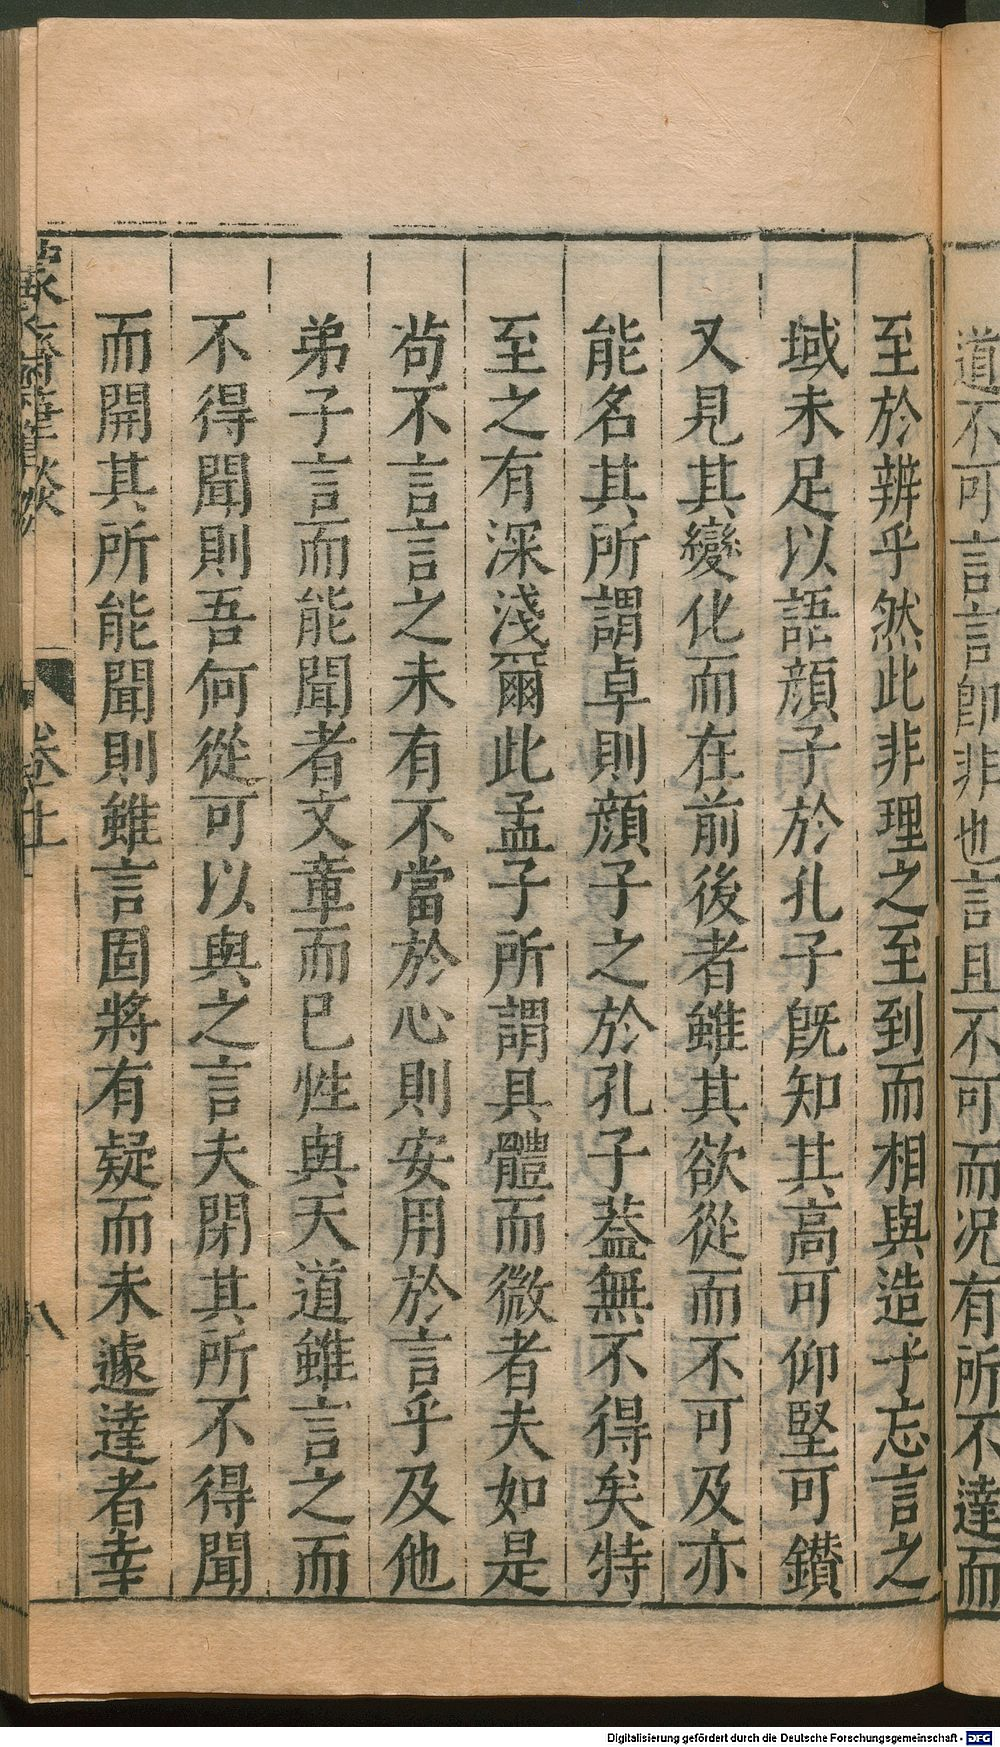 道不可言言即非也言且不可而况有所不達而
至於辨乎然此非理之至到而相與造乎忘言之
域未足以語顔子於孔子既知其高可仰堅可鑚
又見其變化而在前後者雖其欲從而不可及亦
能名其所謂卓則顔子之於孔子葢無不得矣特
至之有深淺爾此孟子所謂具體而微者夫如是
苟不言言之未有不當於心則安用於言乎及他
弟子言而能聞者文章而已性與天道雖言之而
不得聞則吾何從可以與之言夫閉其所不得聞
而開其所能聞則雖言固將有疑而未遽達者幸
蒙齋筆談
卷上
八
Digitalisierung gefördert durch die Deutsche Forschungsgemeinschaft - DFG